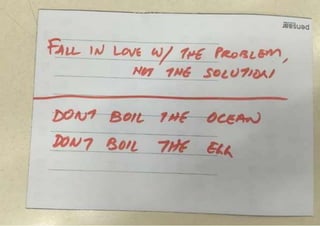 pensaar
FALL IN LOVE W/ THE PROBLEM,
NOT THE SOLUTION
DON'T BOIL THE OCEAN
DON'T BOIL THE EGG